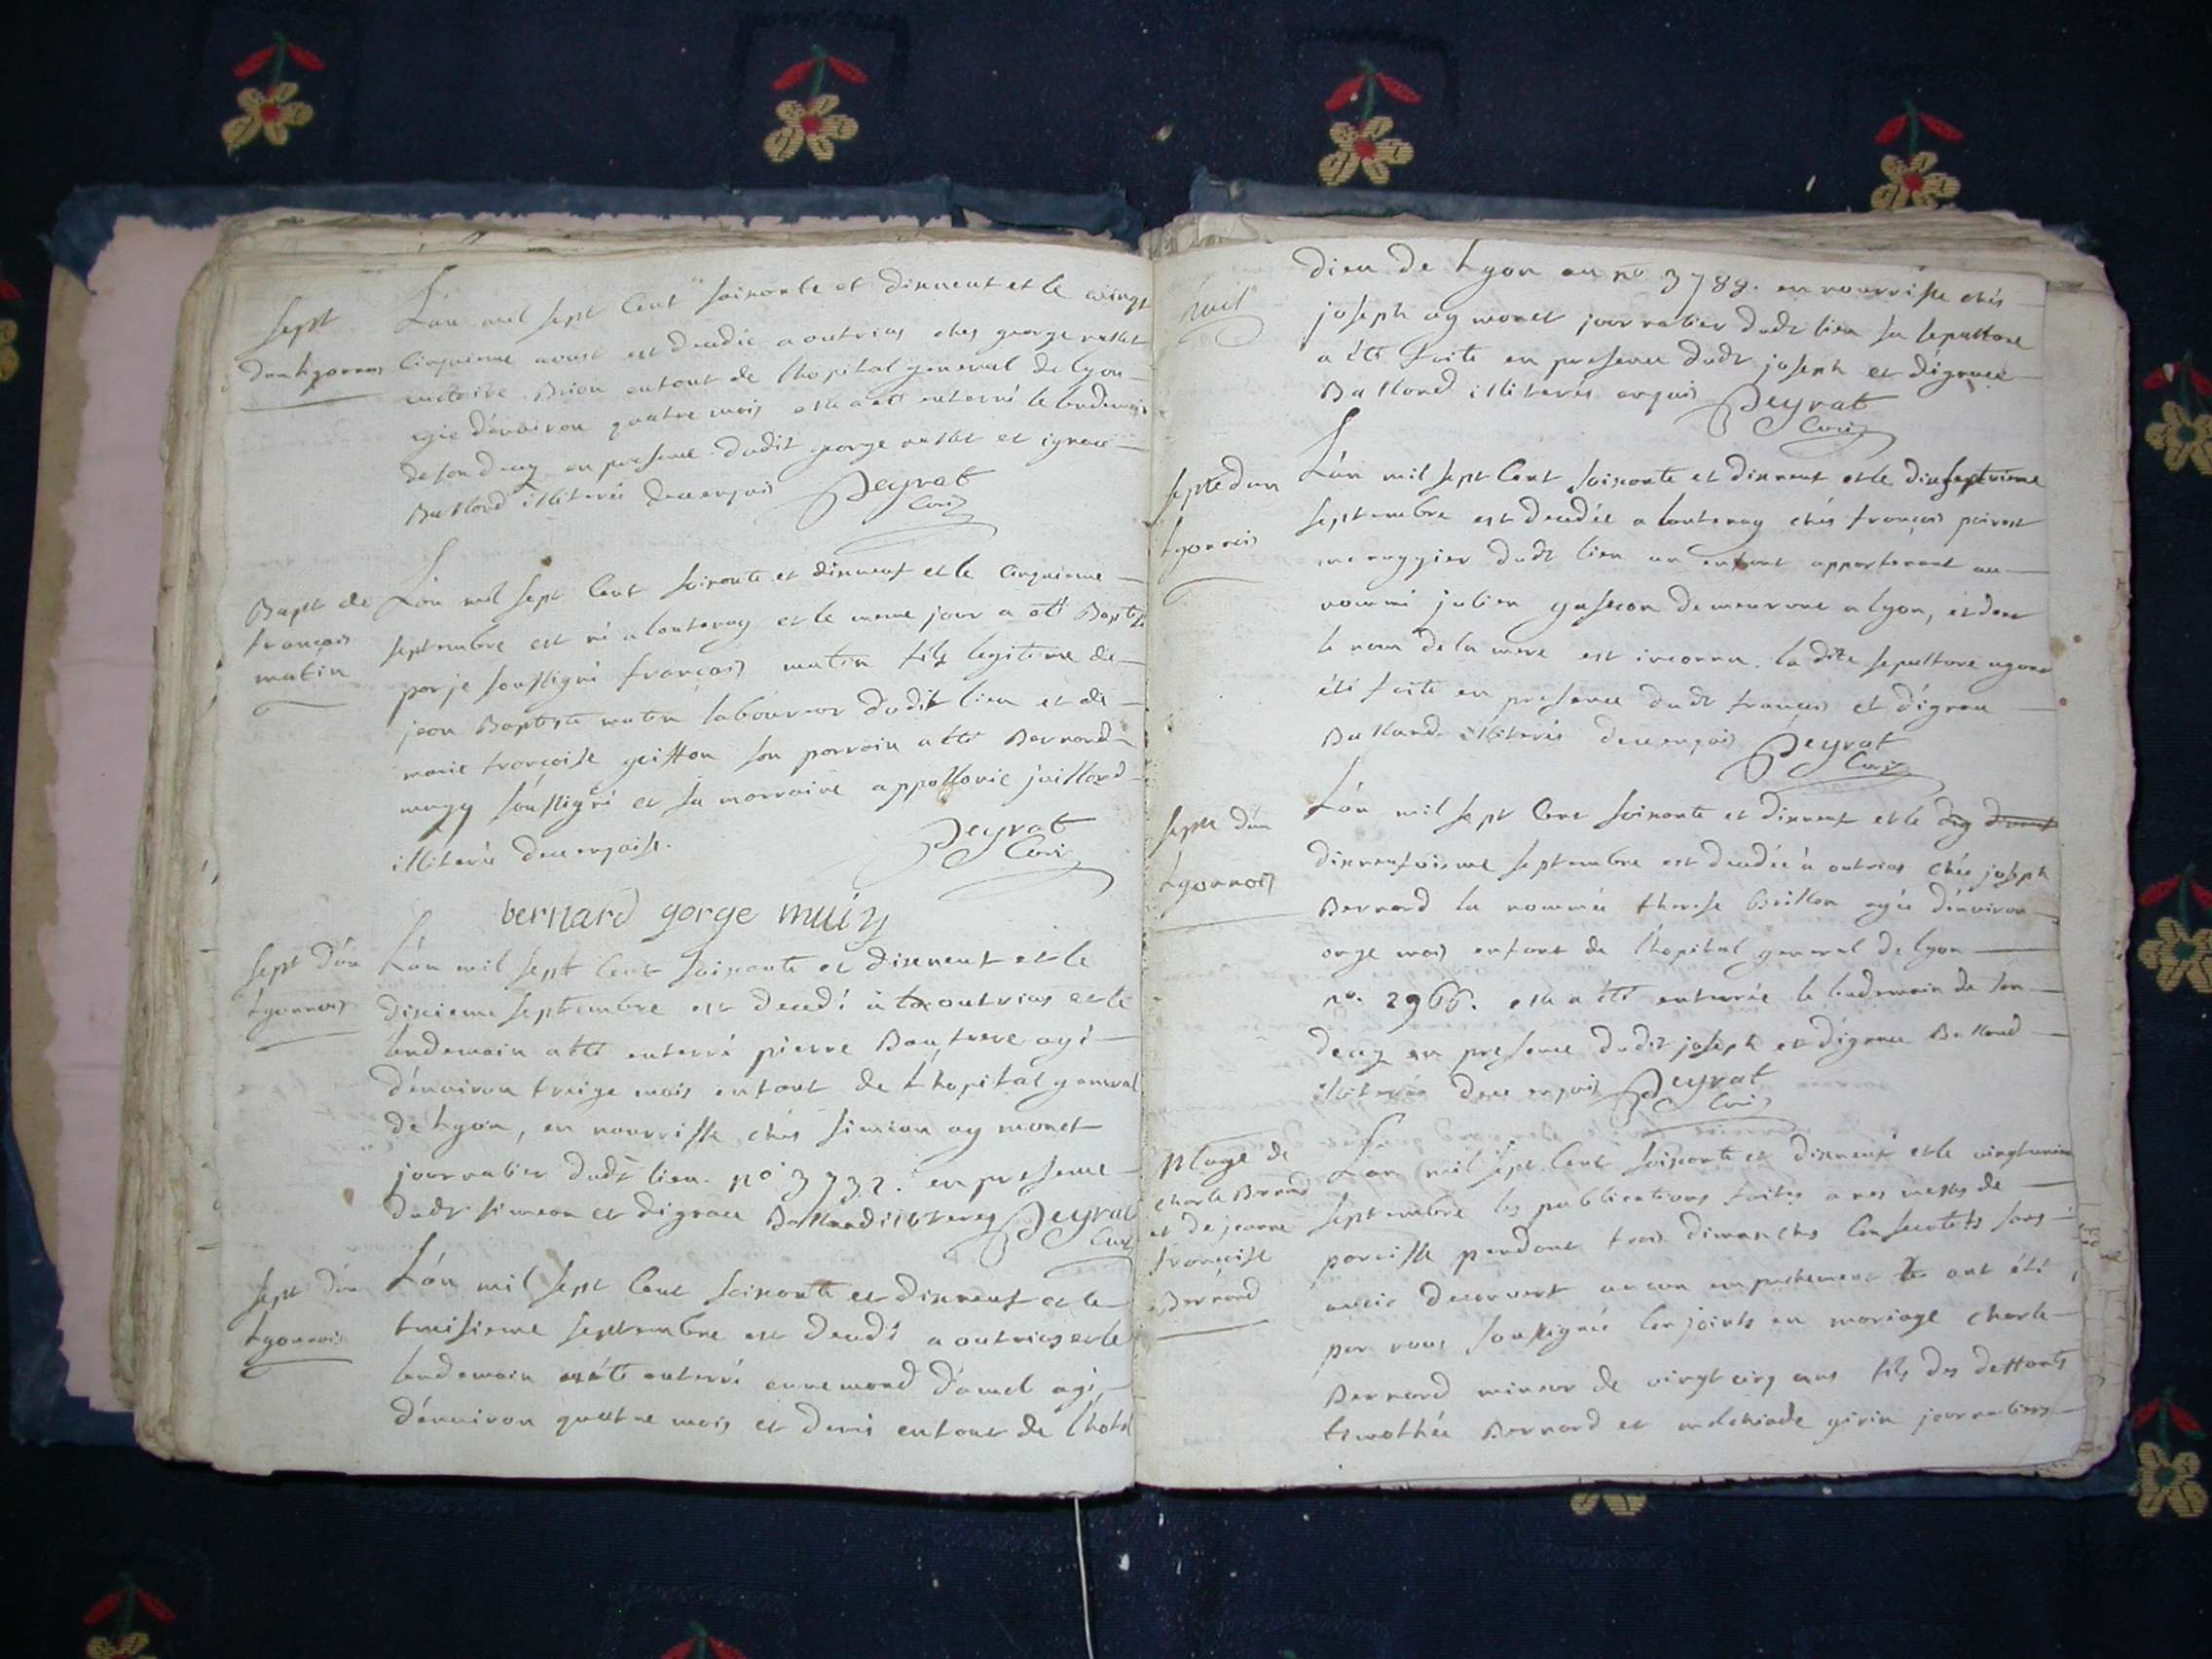 Sept
d'un Lyonnois
L'an mil sept cent soixante et dixneuf et le vingt
cinquieme aoust est decedée a outrias ches george
Brion enfant de l'hopital general de lyon
agée d'environ quatre mois elle a été enterré le lendemain
de son decez en presence dudit george et ignace
Balland illiterés de ce enquis Peyrat
Curé
Bapt de
françois
matin
L'an mil sept cent soixante et dixneuf et le cinquieme
septembre est né a lantenay et le meme jour a été Baptisé
par je soussigné françois matin fils legitime de
jean Baptiste matin laboureur dudit lieu et de
marie françoise guiffon son parrain a été Bernard
mugy soussigné et sa marraine appollonie juilland
illiterée de ce enquise. Peyrat
Curé
bernard gorge muiy
Sept d'un
Lyonnois
L'an mil sept cent soixante et dixneuf et le
dixieme septembre est decedé à outrias et le
lendemain a été enterré pierre agé
d'environ treize mois enfant de l'hopital general
de Lyon, en nourrisse chés simeon aymonet
journalier dudt lieu. no 3732. en presence
dudt simeon et d'ignace Balland illiterez Peyrat
Curé
Sept d'un
Lyonnois
L'an mil sept cent soixante et dixneuf et le
treisieme septembre est decedé a outrias et le
lendemain a été enterré ennemond d'amel agé
d'environ quatre mois et demi enfant de l'hotel
dieu de Lyon au no 3789. en nourrisse chés
joseph aymonet journalier dudt lieu sa sepulture
a été faite en presence dudt joseph et d'ignace
Balland illiterés enquis Peyrat
Curé
Septe d'un
Lyonnois
L'an mil sept cent soixante et dixneuf et le dixseptieme
septembre est decedée a lantenay chés françois
dudt lieu un enfant appartenant au
nommé julien gascon demeurant a lyon, et dont
le nom de la mere est inconnu. la dite sepulture ayant
été faite en presence dudt françois et d'ignace
Balland illiterés de ce enquis Peyrat
Curé
Septe d'un
Lyonnois
L'an mil sept cent soixante et dixneuf et le
dixneuvieme septembre est decedée à outrias chés joseph
Bernard la nommée therese agée d'environ
onze mois enfant de l'hopital general de lyon
no. 2966. elle a été enterrée le lendemain de son
decez en presence dudit joseph et d'ignace Balland
illiterés de ce enquis Peyrat
Curé
Mage de
charle Bernard
et de jeanne
françoise
Bernard
L'an mil sept cent soixante et dixneuf et le
septembre les publications faites a nos messes de
paroisse pendant trois dimanches consecutifs sans
avoir decouvert aucun empechement ont été
par nous soussigné conjoints en mariage charle
Bernard mineur de vingt cinq ans fils des deffunts
timothée Bernard et melchiade girin journaliers